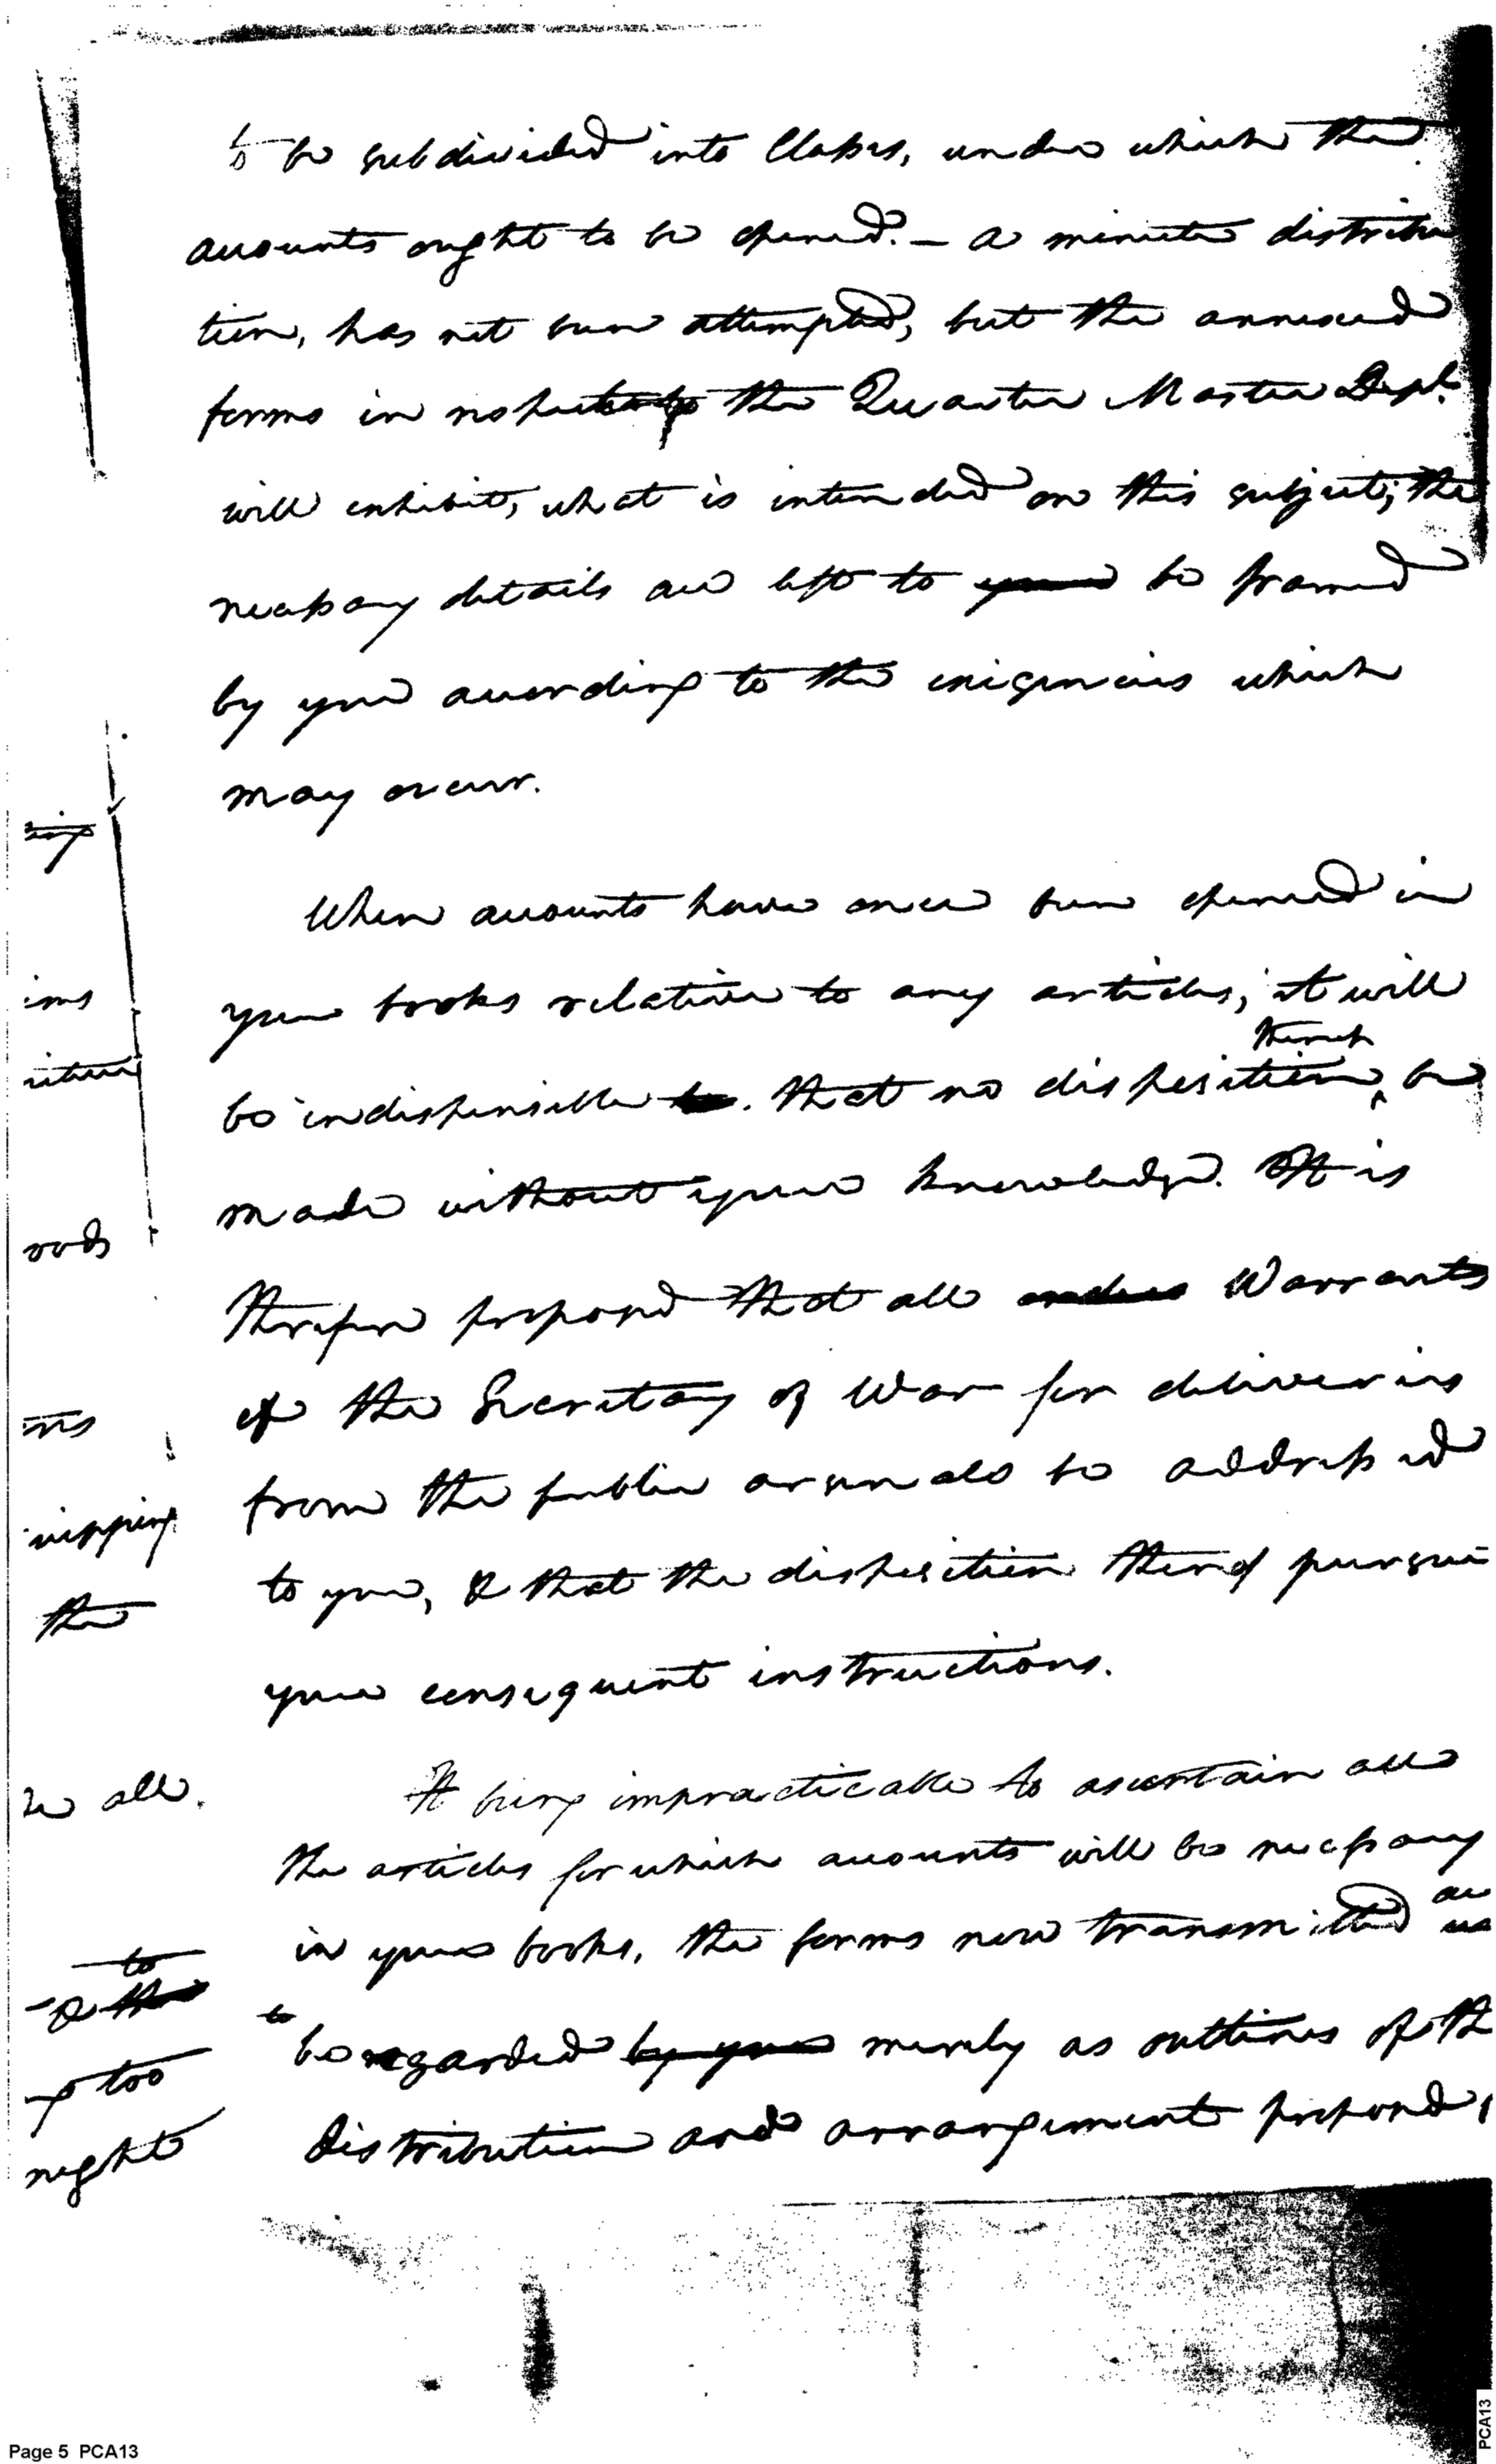 to be subdivided into Classes, under which the
accounts ought to be opened. – a minute distribu
tion, has not been attempted, but the annexed
forms in respect to the Quarter Master Dept.
will exhibit, what is intended on this subject; the
necessary details are left to you be framed
by you according to the exigencies which
may occur.
ing
When accounts have once been opened in
ims
your books relative to any articles, it will
thereof
be indispensible to. that no disposition ^ be
made without your knowledge. It is
oods
therefore proposed that all orders Warrants
of the Secretary of War for deliveries
from the public arsenals be addressed
ripping
to you, & that the disposition thereof pursue
the
your consequent instructions.
It being impracticable to ascertain all
all.
the articles for which accounts will be necessary
are
in your books, the forms now transmitted
to
& the
to
be regarded by you merely as outlines of th
too
distribution and arrangement proposed,
night
Page 5 PCA13
PCA13